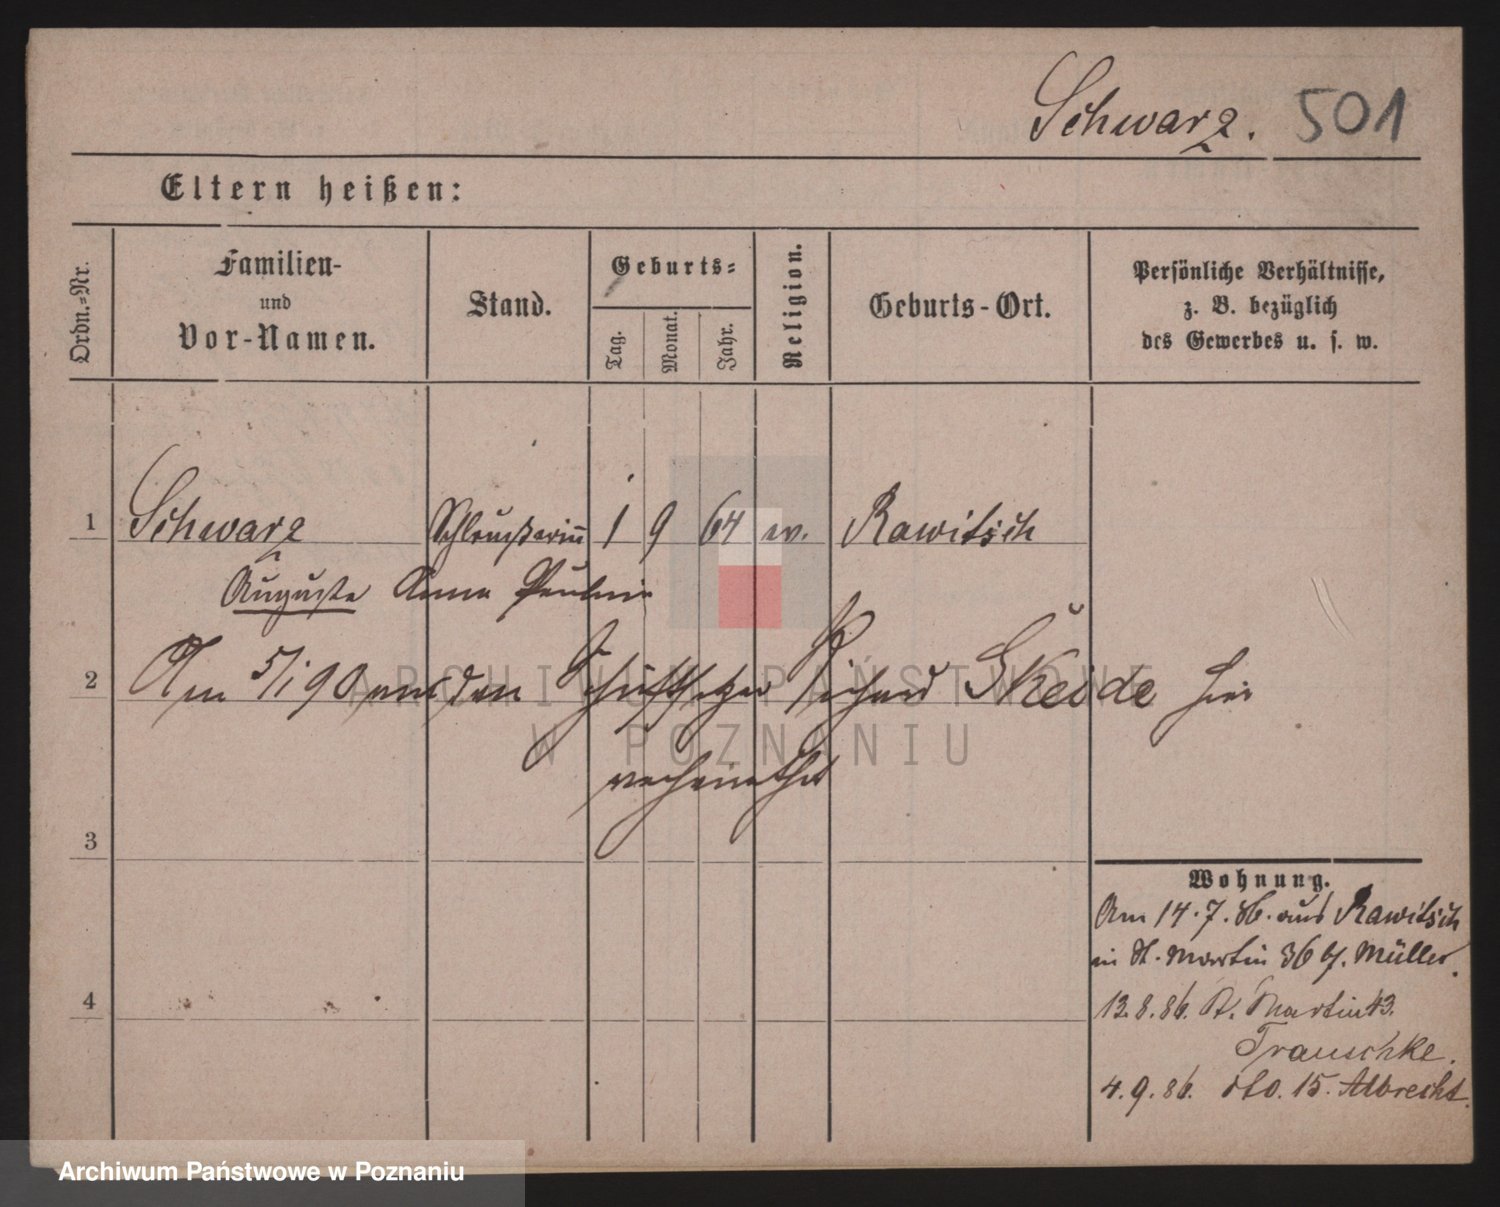 Schwarz. 501
Eltern heißen:
Ordn.-Nr.
Familien-
und
Vor-Namen.
Stand.
Geburts-
Tag.
Monat.
Jahr.
Religion.
Geburts-Ort.
Persönliche Verhältnisse,
z. B. bezüglich
des Gewerbes u. s. w.
1 Schwarz 1 9 64 ev. Rawitsch
Auguste Anna Pauline
2 Am 5/1 90 mit dem Schriftsetzer Richard Skeide hier
verheirathet
3
Wohnung.
Am 14.7.86. aus Rawitsch
in St. Martin 36 b/. Müller.
4
13.8.86. St. Martin 43.
Trauschke.
4.9.86. dto. 15. Albrecht.
ARCHIWUM PAŃSTWOWE
W POZNANIU
Archiwum Państwowe w Poznaniu